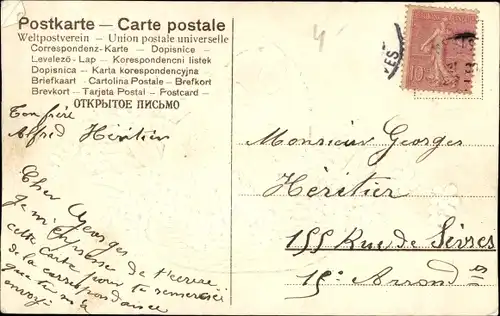 Postkarte — Carte postale
Weltpostverein — Union postale universelle
Correspondenz-Karte — Dopisnice
Levelező-Lap — Korespondencni listek
Dopisnica — Karta korespondencyjna
Briefkaart — Cartolina Postale — Brefkort
Brevkort — Tarjeta Postal — Postcard —
ОТКРЫТОЕ ПИСЬМО
4
10
Ton frère
Alfred Héritier
Cher Georges
Je m'empresse de t'
cette carte pour te
de la correspondance
que tu m'a
envoyé
Monsieur Georges
Héritier
155 Rue de Sèvres
15e Arrond